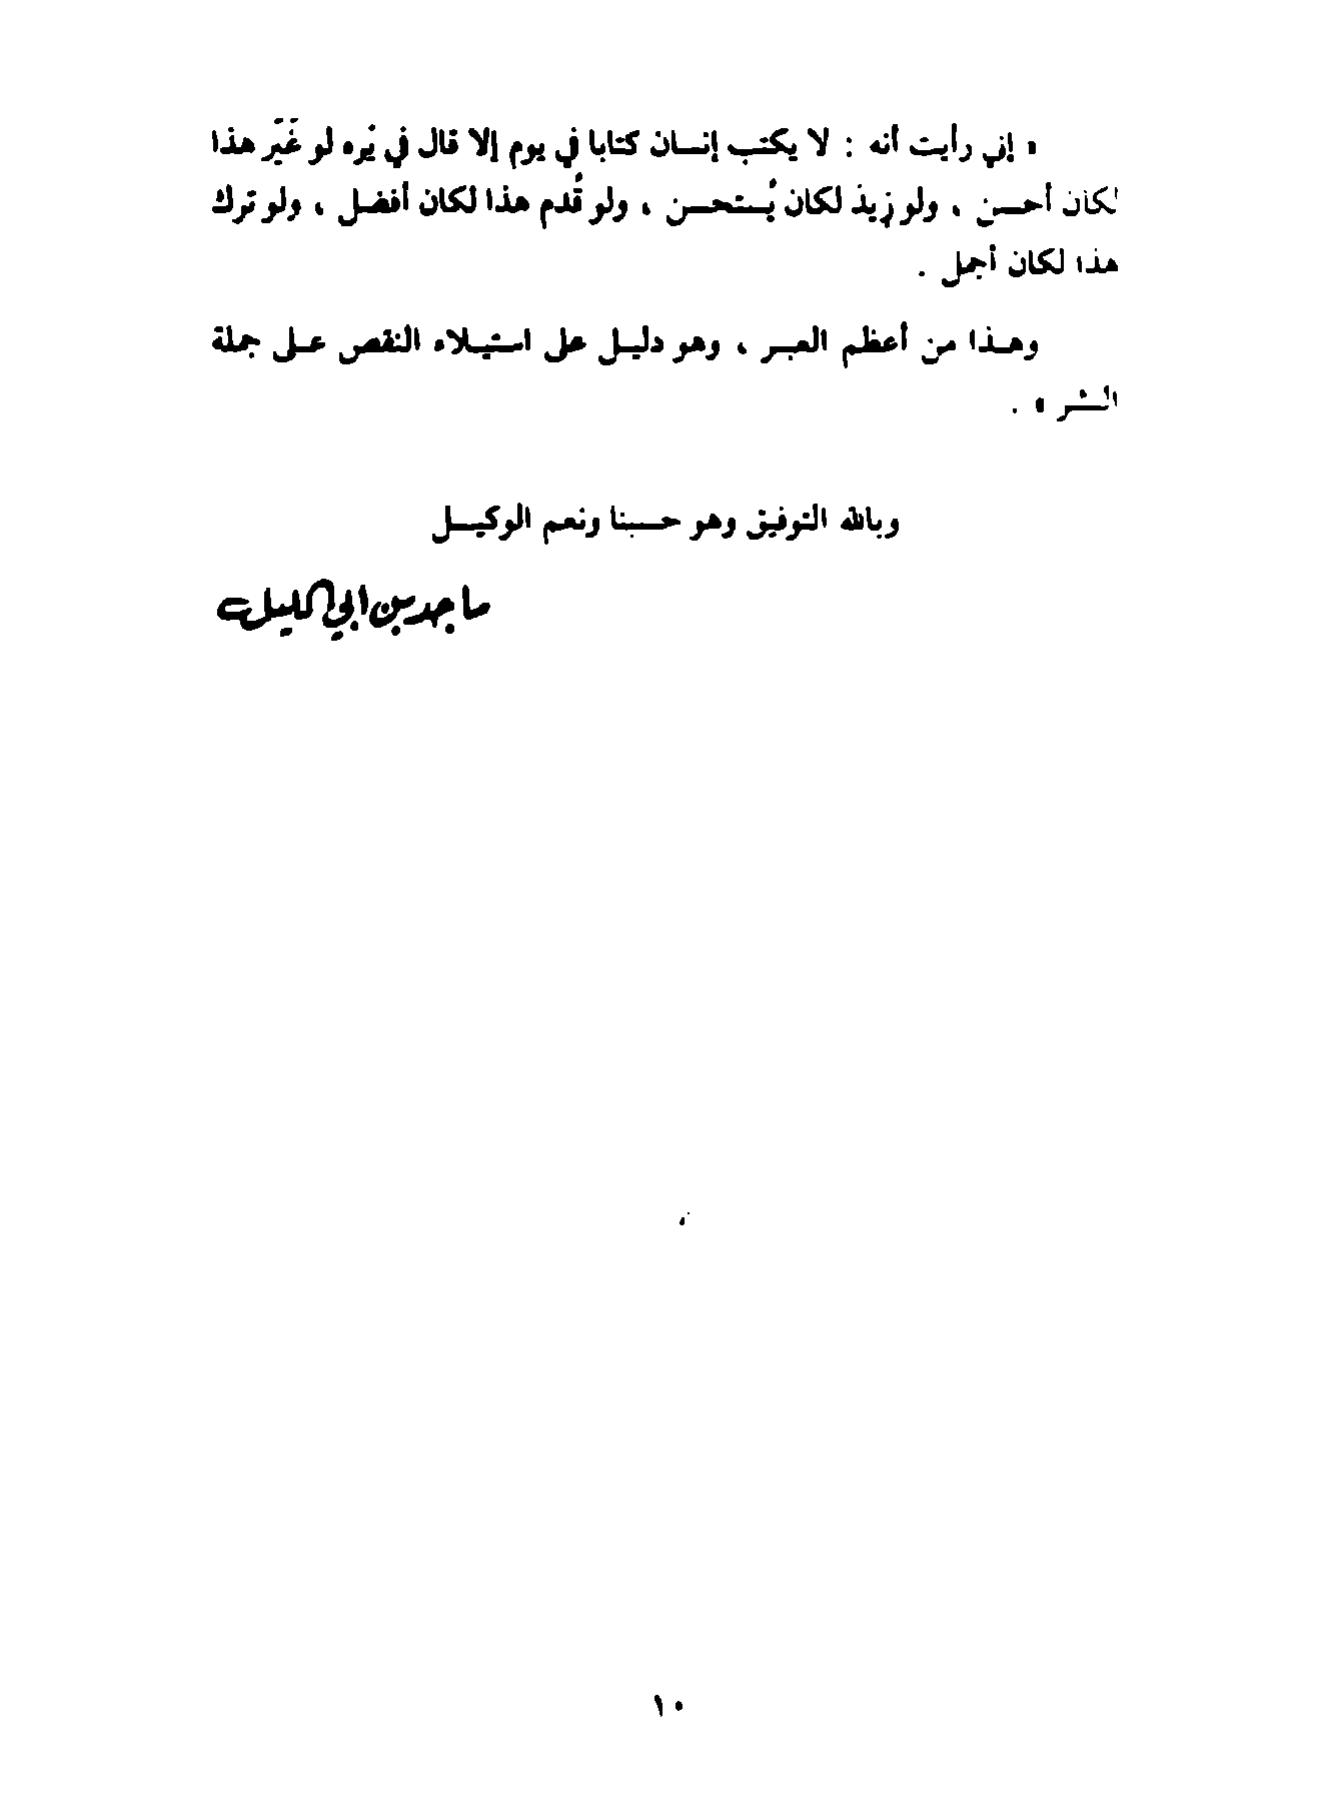 « إني رأيت أنه : لا يكتب إنسان كتابا في يوم إلا قال في يَره لو غَيّر هذا
لكان أحسن ، ولو زيدَ لكان يُستحسن ، ولو قُدم هذا لكان أفضل ، ولو ترك
هذا لكان أجمل .
وهذا من أعظم العبر ، وهو دليل على استيلاء النقص على جملة
البشر » .
وبالله التوفيق وهو حسبنا ونعم الوكيل
ماجد بن أبي الليل
١٠